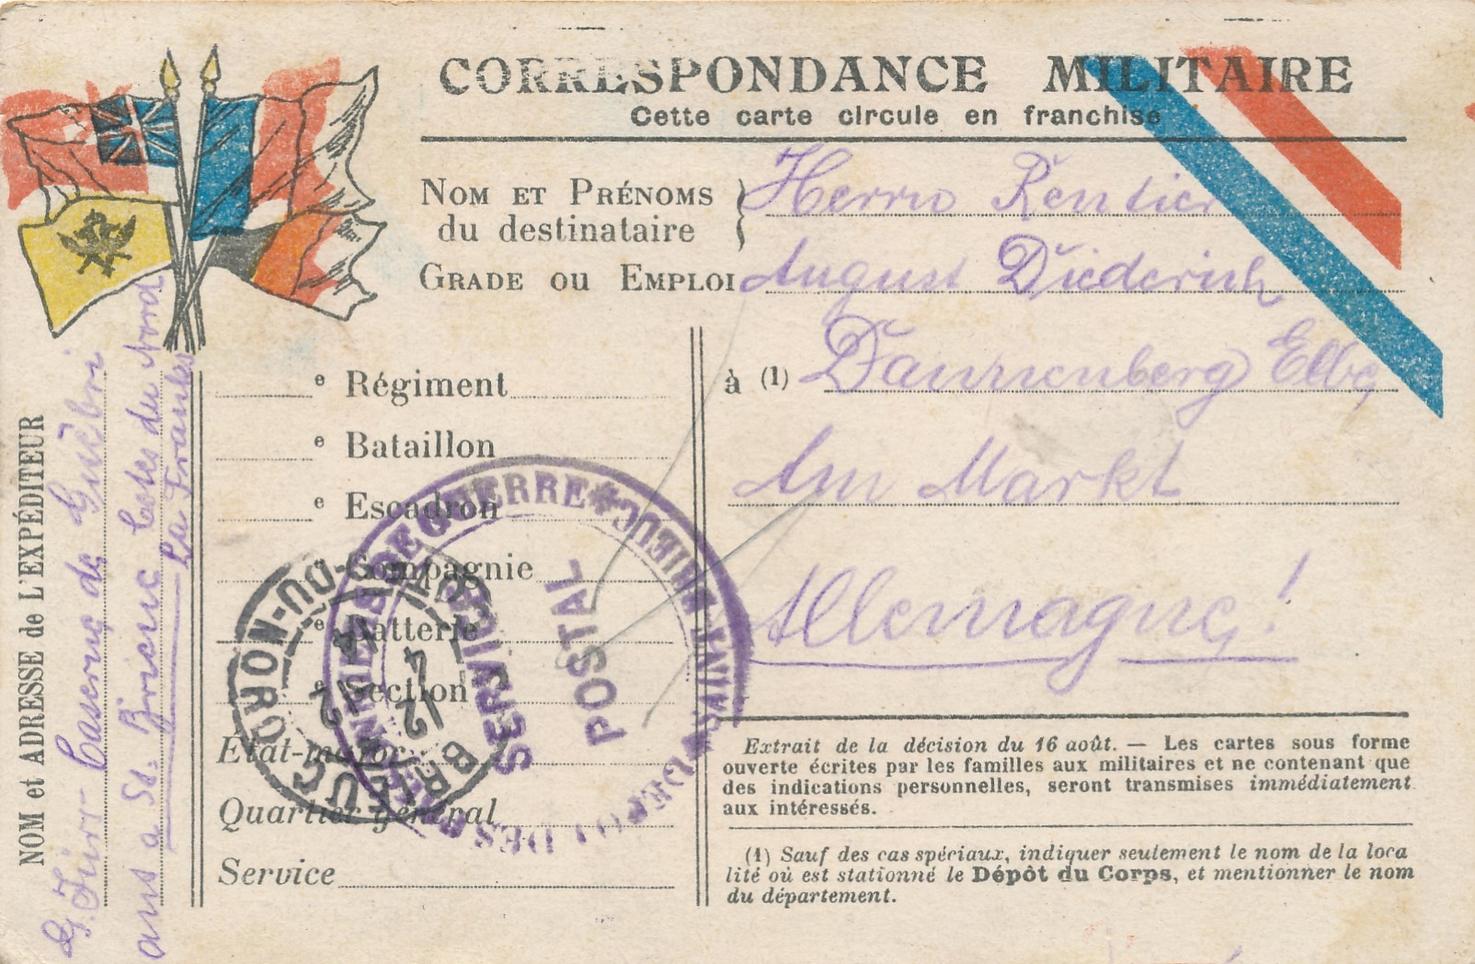 CORRESPONDANCE MILITAIRE
Cette carte circule en franchise
NOM ET PRÉNOMS
du destinataire
Herrn Rentier
GRADE OU EMPLOI August Diederich
à (1) Dannenberg Elbe
Am Markt
Allemagne!
e Régiment
e Bataillon
e Escadron
e Compagnie
e Batterie
e Section
État-major
Quartier général
Service
NOM et ADRESSE de L'EXPÉDITEUR
Caserne de Guébri
ans a St. Brieuc Cotes du Nord
La France
SERVICE
POSTAL
PRISONNIERS DE GUERRE * SAINT-BRIEUC * DEPOT DES
ST BRIEUC COTES-DU-NORD
12 4
Extrait de la décision du 16 août. — Les cartes sous forme
ouverte écrites par les familles aux militaires et ne contenant que
des indications personnelles, seront transmises immédiatement
aux intéressés.
(1) Sauf des cas spéciaux, indiquer seulement le nom de la loca
lité où est stationné le Dépôt du Corps, et mentionner le nom
du département.